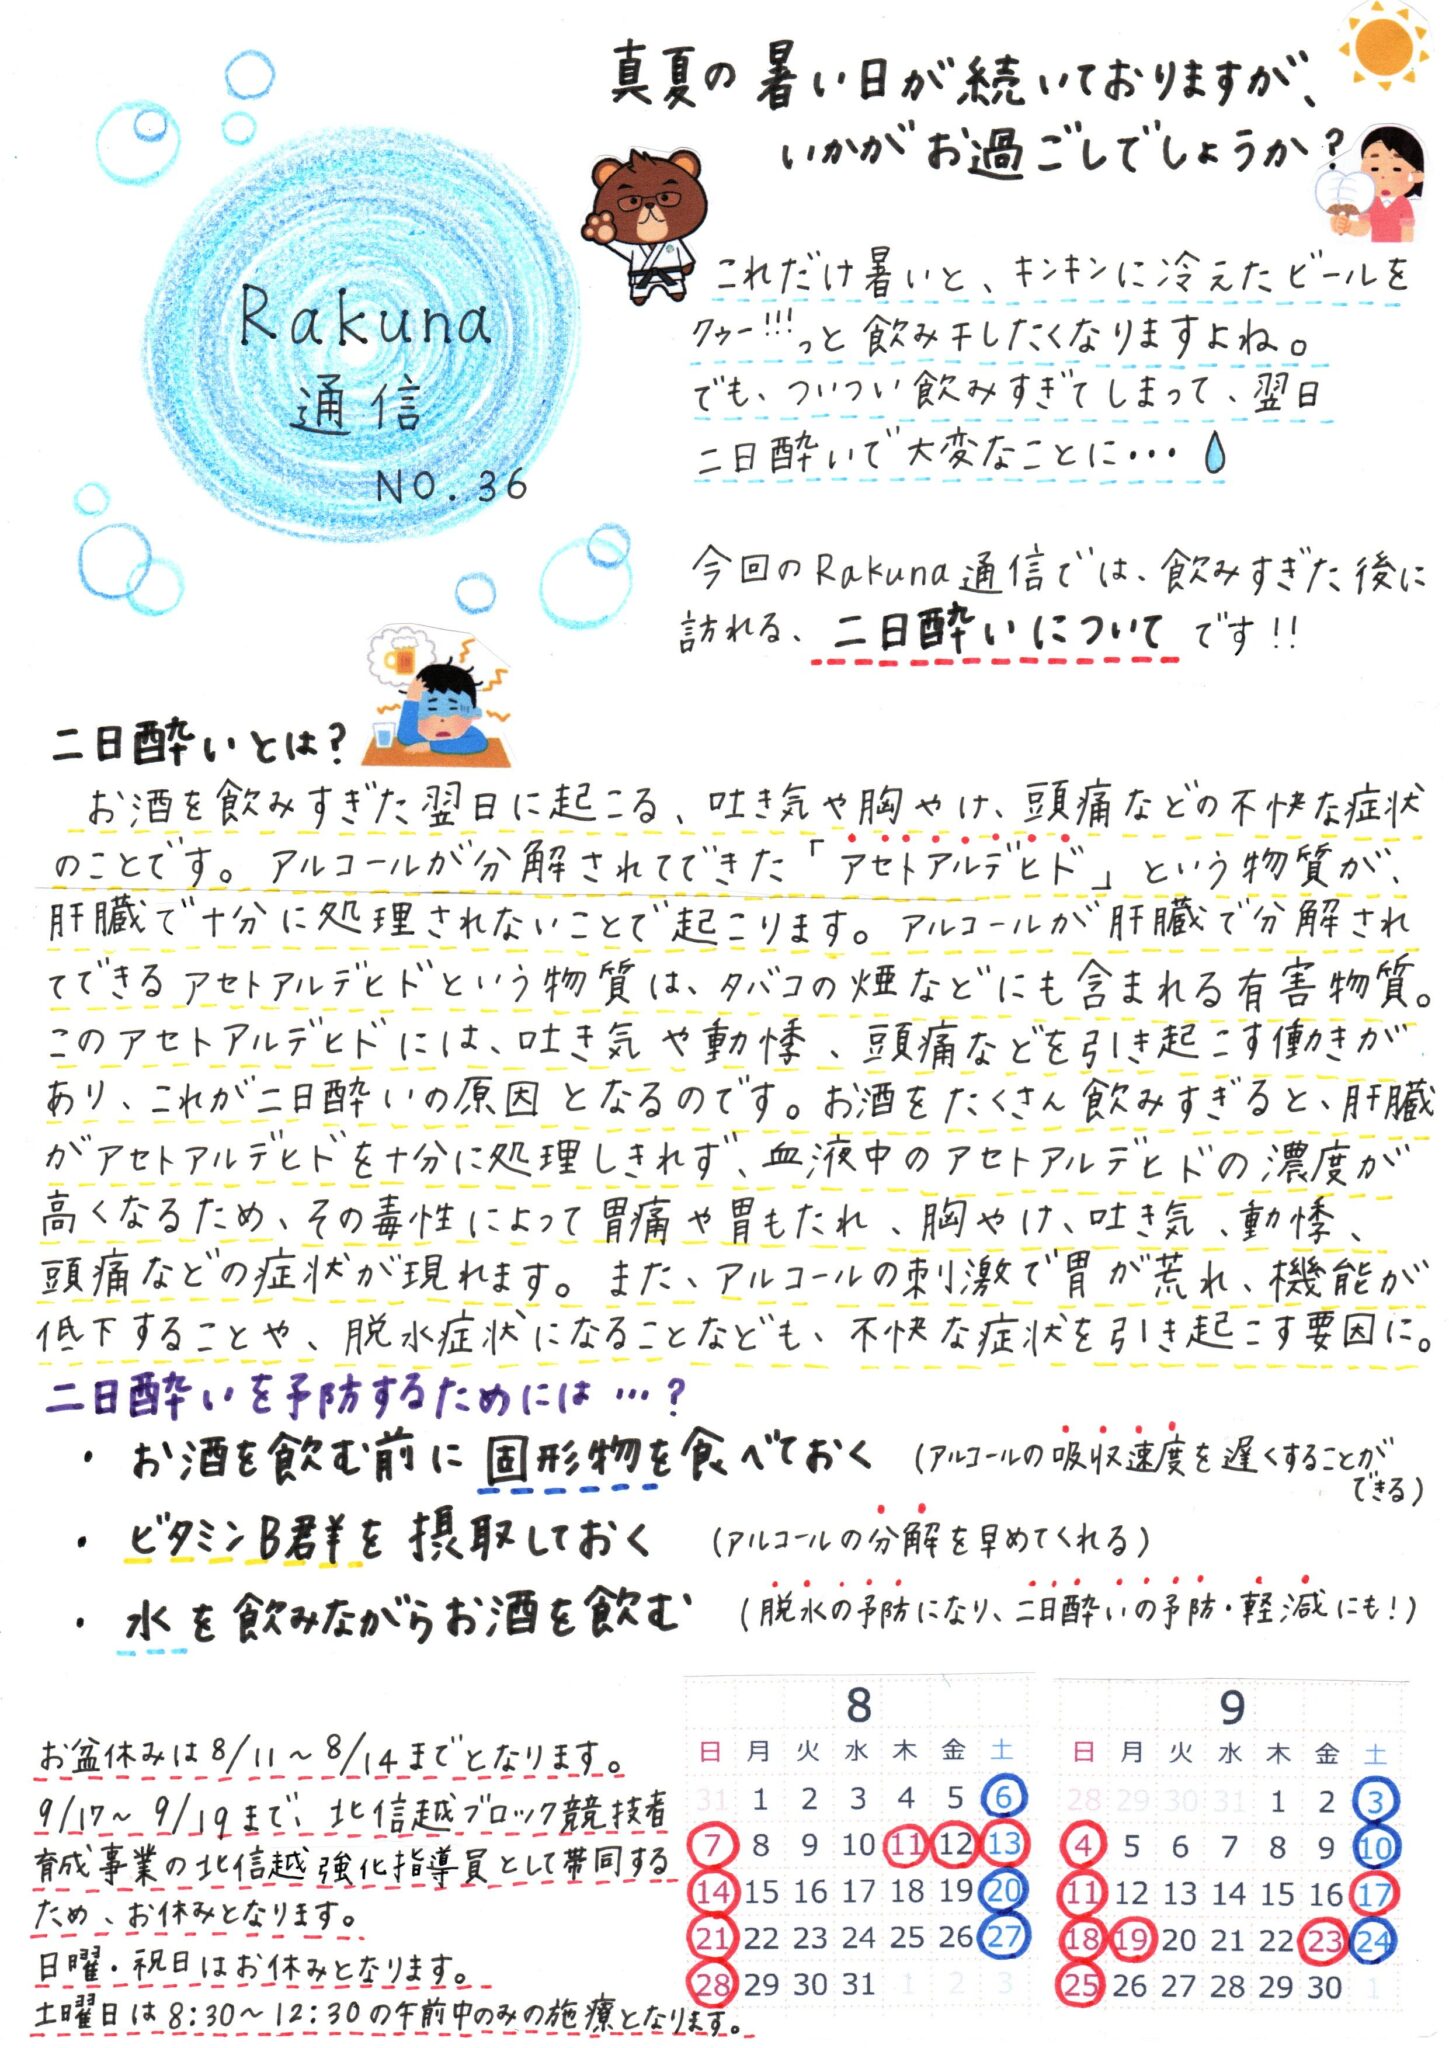 Rakuna
通信
NO.36
真夏の暑い日が続いておりますが、
いかがお過ごしでしょうか?
これだけ暑いと、キンキンに冷えたビールを
クゥー!!!っと飲み干したくなりますよね。
でも、ついつい飲みすぎてしまって、翌日
二日酔いで大変なことに・・・
今回のRakuna通信では、飲みすぎた後に
訪れる、二日酔いについてです!!
二日酔いとは?
お酒を飲みすぎた翌日に起こる、吐き気や胸やけ、頭痛などの不快な症状
のことです。アルコールが分解されてできた「アセトアルデヒド」という物質が、
肝臓で十分に処理されないことで起こります。アルコールが肝臓で分解され
てできるアセトアルデヒドという物質は、タバコの煙などにも含まれる有害物質。
このアセトアルデヒドには、吐き気や動悸、頭痛などを引き起こす働きが
あり、これが二日酔いの原因となるのです。お酒をたくさん飲みすぎると、肝臓
がアセトアルデヒドを十分に処理しきれず、血液中のアセトアルデヒドの濃度が
高くなるため、その毒性によって胃痛や胃もたれ、胸やけ、吐き気、動悸、
頭痛などの症状が現れます。また、アルコールの刺激で胃が荒れ、機能が
低下することや、脱水症状になることなども、不快な症状を引き起こす要因に。
二日酔いを予防するためには…?
・お酒を飲む前に固形物を食べておく (アルコールの吸収速度を遅くすることが
できる)
・ビタミンB群を摂取しておく (アルコールの分解を早めてくれる)
・水を飲みながらお酒を飲む (脱水の予防になり、二日酔いの予防・軽減にも!)
お盆休みは8/11~8/14までとなります。
9/17~9/19まで、北信越ブロック競技者
育成事業の北信越強化指導員として帯同する
ため、お休みとなります。
日曜・祝日はお休みとなります。
土曜日は8:30~12:30の午前中のみの施療となります。
8
日 月 火 水 木 金 土
31 1 2 3 4 5 6
7 8 9 10 11 12 13
14 15 16 17 18 19 20
21 22 23 24 25 26 27
28 29 30 31 1 2 3
9
日 月 火 水 木 金 土
28 29 30 31 1 2 3
4 5 6 7 8 9 10
11 12 13 14 15 16 17
18 19 20 21 22 23 24
25 26 27 28 29 30 1